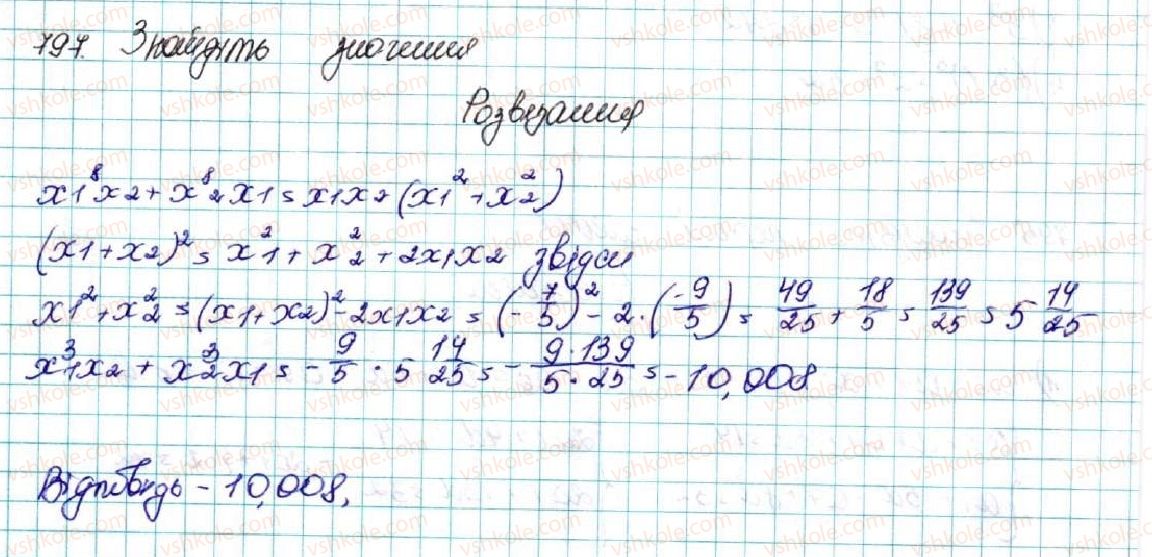 797. Знайдіть значення
Розв'язання
x1⁸x2 + x⁸2x1 = x1x2 (x1² + x2²)
(x1 + x2)² = x1² + x2² + 2x1x2 звідси
x1² + x2² = (x1 + x2)² - 2x1x2 = (-7/5)² - 2·(-9/5) = 49/25 + 18/5 = 139/25 = 5 14/25
x1³x2 + x2³x1 = -9/5 · 5 14/25 = - 9·139/5·25 = -10,008
Відповідь -10,008.